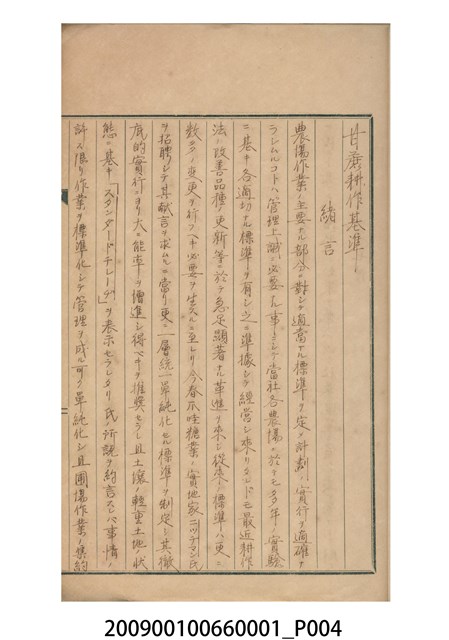 甘蔗耕作基準
緒言
農場作業ノ主要ナル部分ニ對シテ適當ナル標準ヲ定メ計劃ノ實行ヲ適確ナ
ラシムルコトハ管理上誠ニ必要ナル事トシテ當社各農場ニ於テモ多年ノ實驗
ニ基キ各適切ナル標準ヲ有シ之ニ準據シテ經營シ來リタレドモ最近耕作
法ノ改善品種ノ更新等ニ於テ急足顯著ナル革進ヲ來シ從來ノ標準ハ更ニ
數多ノ變更ヲ行フベキ必要ヲ生スルニ至レリ今春爪哇糖業ノ實地家ニッチマン氏
ヲ招聘シテ其献言ヲ求ムルニ當リ更ニ一層統一單純化セル標準ヲ制定シ其徹
底的實行ニヨリ大ニ能率ヲ增進シ得ベキヲ推奬セラレ且土壤ノ輕重土地ノ狀
態ニ基キ「スタンダードチレーヂ」ヲ表示セラレタリ氏ノ所說ヲ約言スレバ事情ノ
許ス限リ作業ヲ標準化シテ管理ヲ成ル可ク單純化シ且圃場作業ノ集約
200900100660001_P004